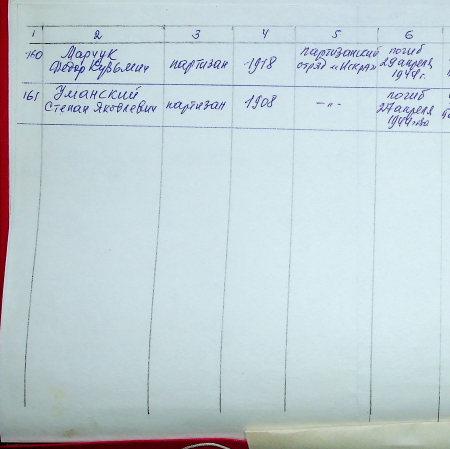 1 2 3 4 5 6
160 Марчук Федор Кузьмич партизан 1918 партизанский отряд «Искра» погиб 29 апреля 1944 г.
161 Уманский Степан Яковлевич партизан 1908 —〃— погиб 27 апреля